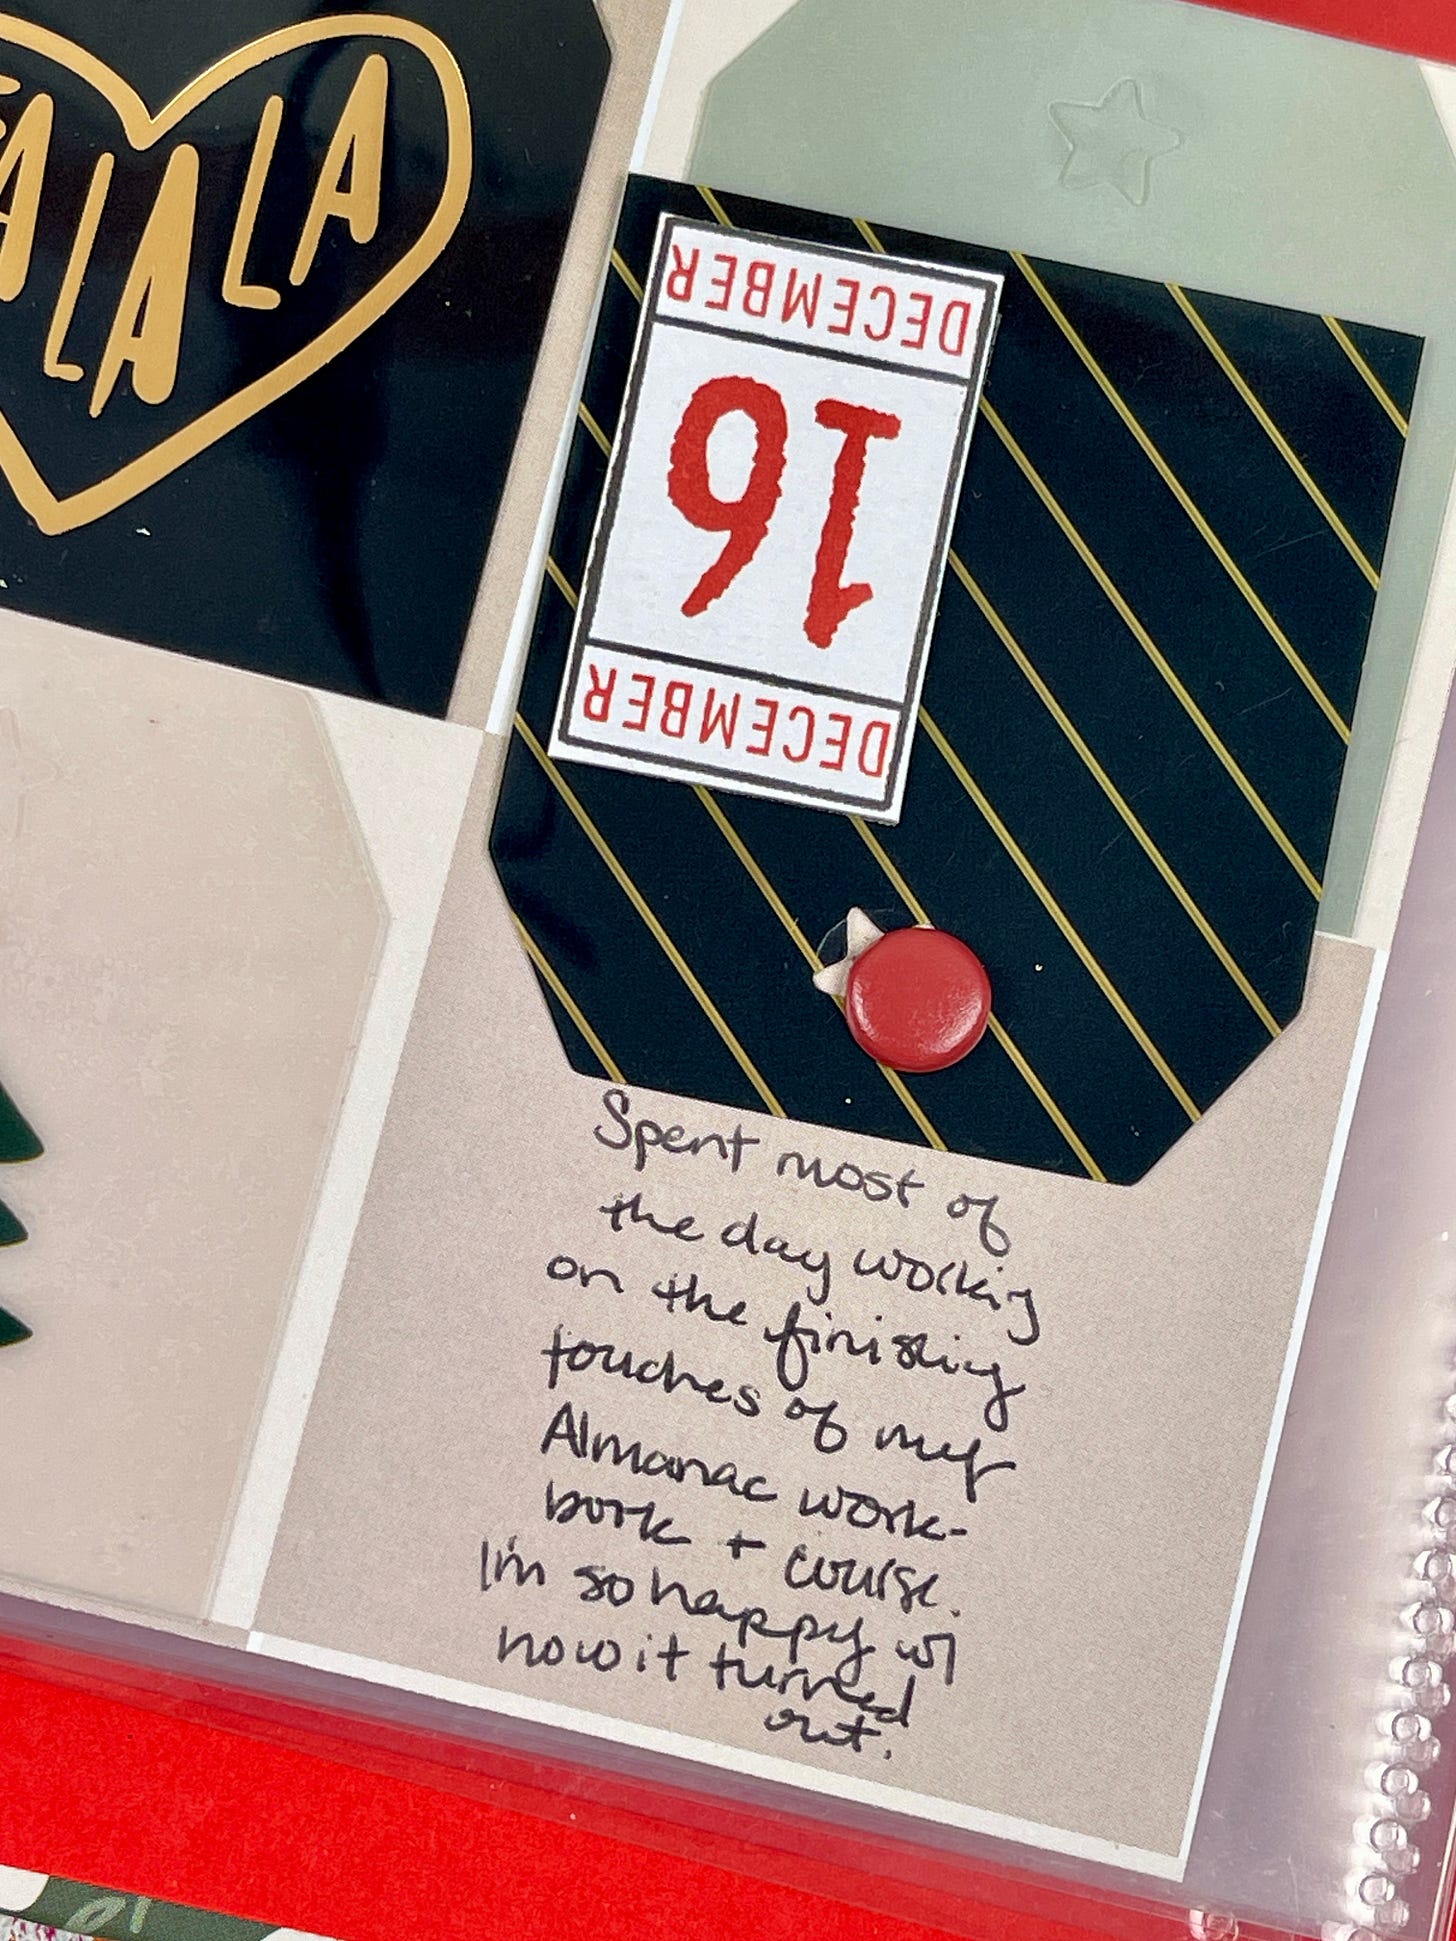 A LA LA
DECEMBER
16
DECEMBER
Spent most of
the day working
on the finishing
touches of my
Almanac work-
book + course.
I'm so happy w/
how it turned
out.